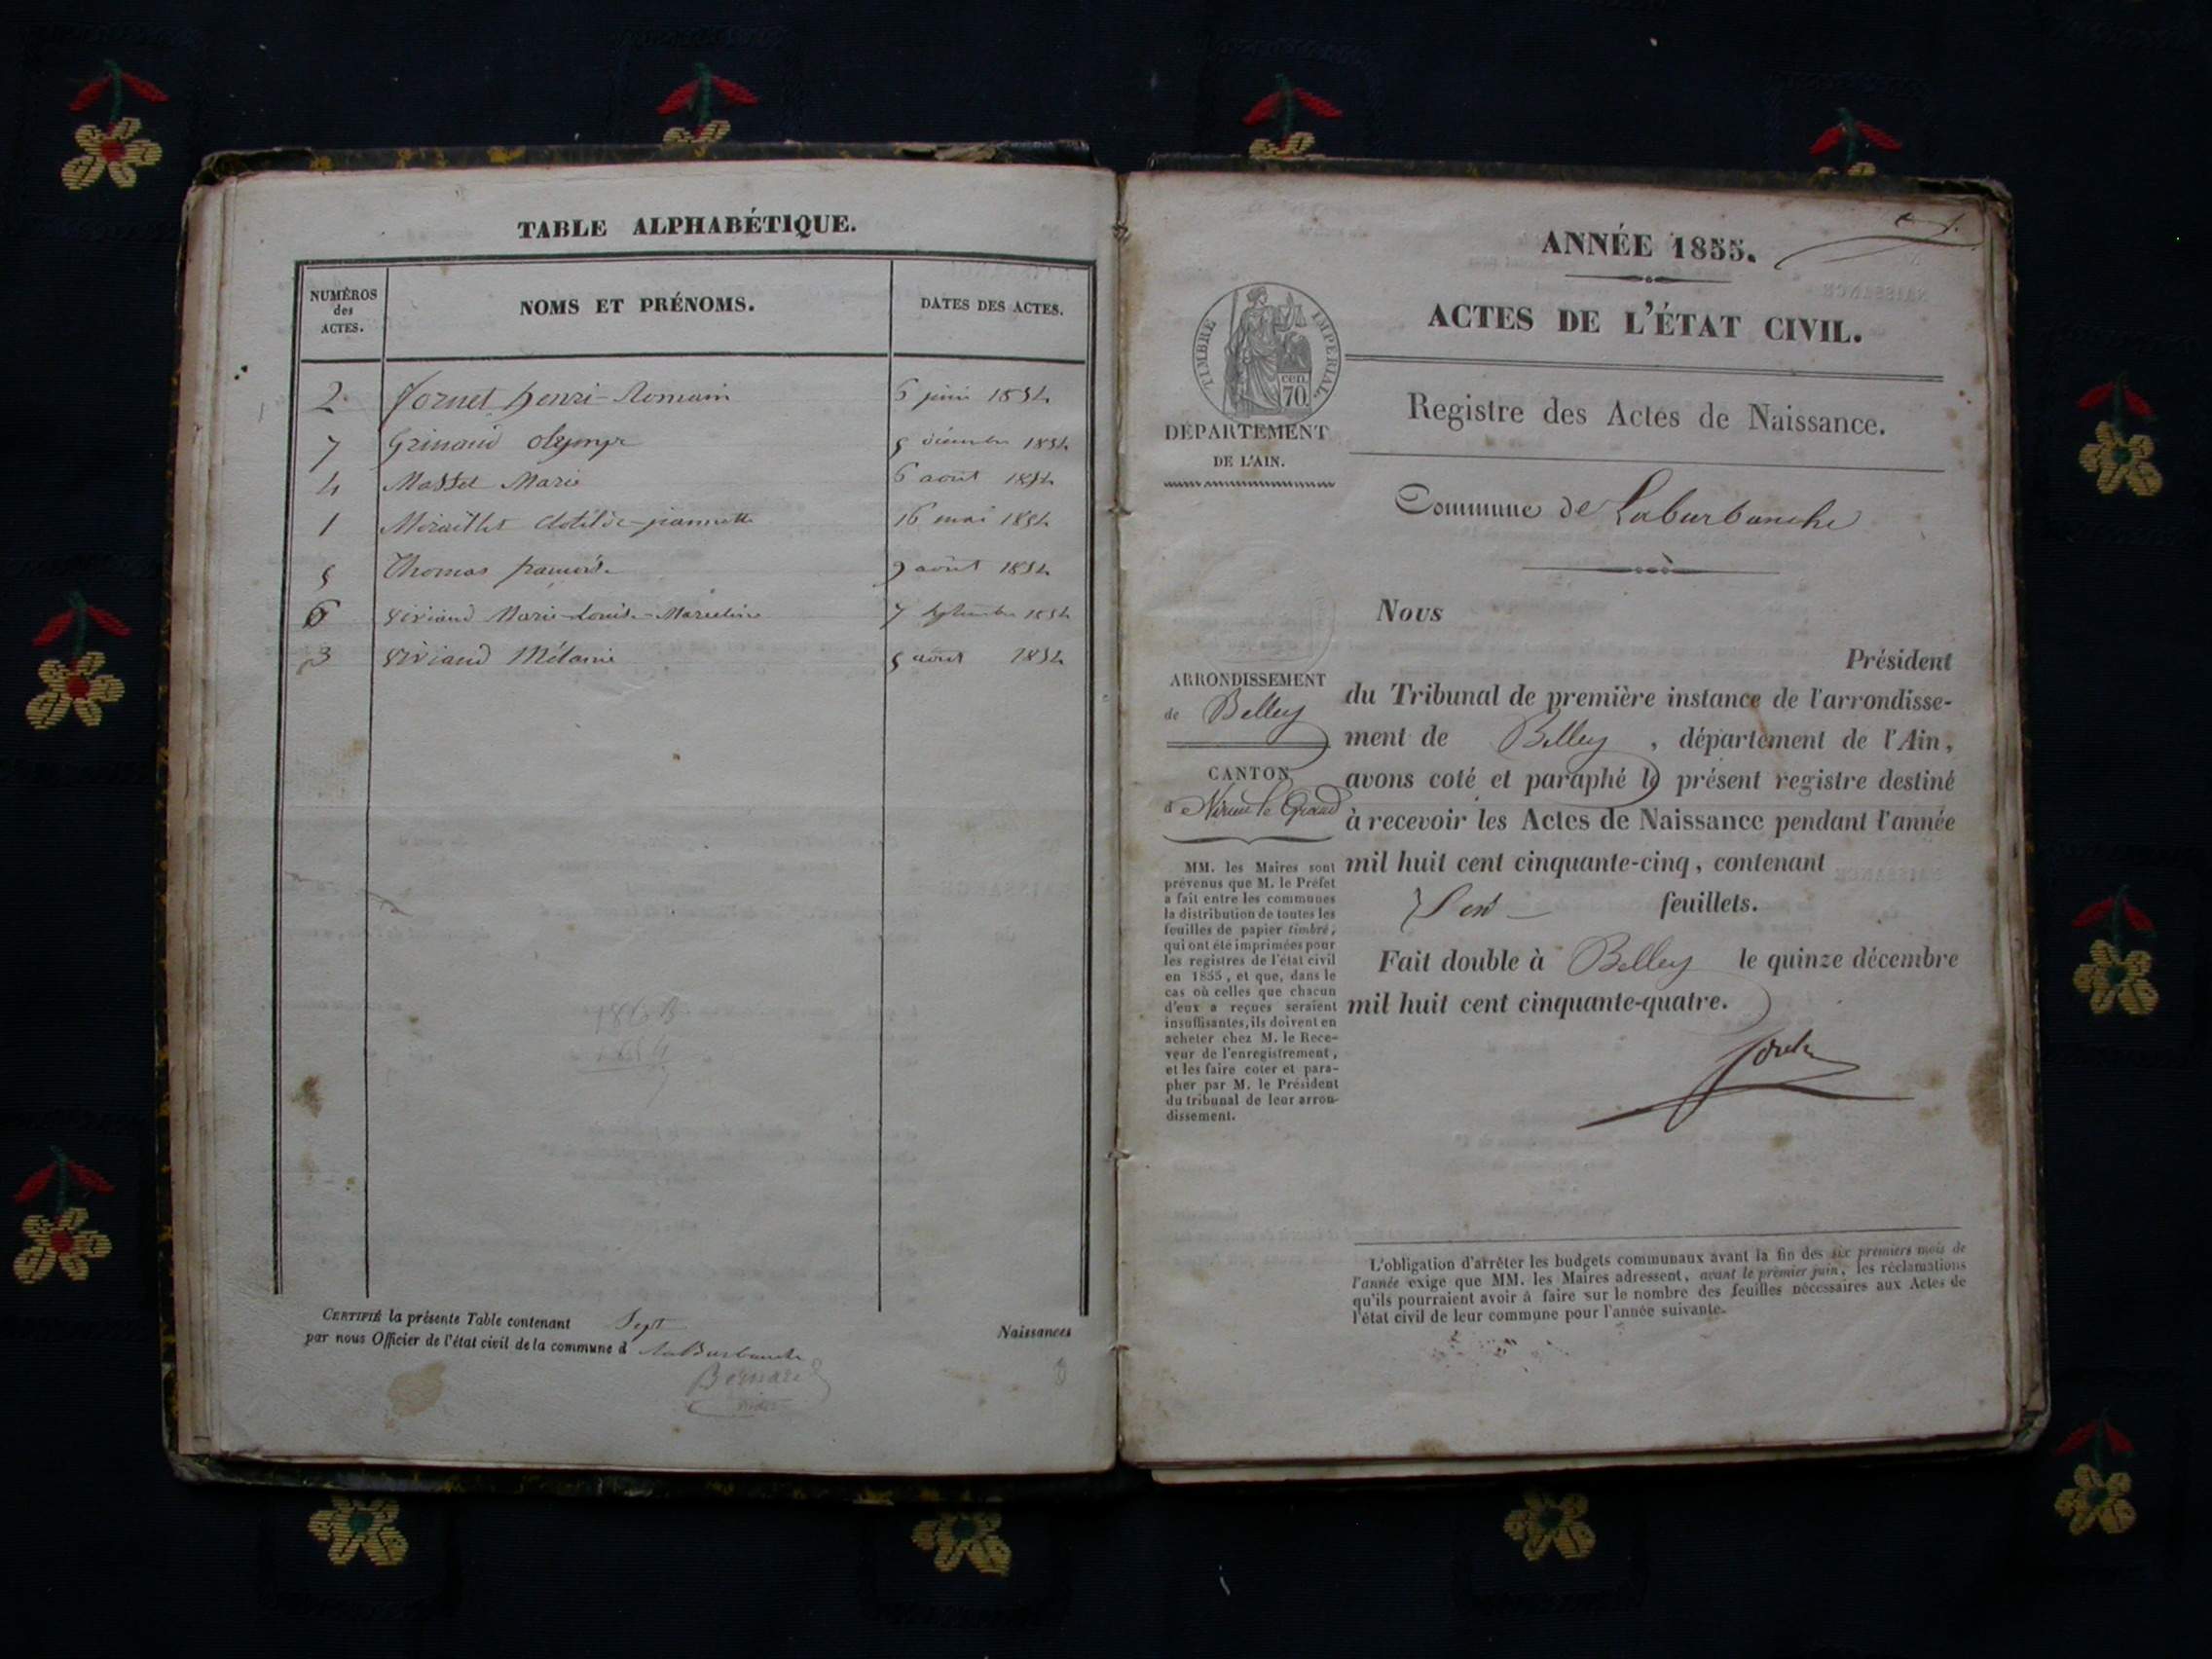 TABLE ALPHABÉTIQUE.
NUMÉROS des ACTES.
NOMS ET PRÉNOMS.
DATES DES ACTES.
2 Jornet henri-Romain 6 juin 1854
7 Grinand olympe 5 décembre 1854
4 Masset Marie 6 août 1854
1 Miraillet Clotilde-jeannette 16 mai 1854
5 Thomas 9 août 1854
6 Viviand Marie-Louise-Marceline 7 septembre 1854
3 Viviand Mélanie 5 août 1854
CERTIFIÉ la présente Table contenant Sept Naissances
par nous Officier de l'état civil de la commune d LaBurbanche
Bernard
ANNÉE 1855.
ACTES DE L'ÉTAT CIVIL.
TIMBRE IMPERIAL
cen.
70
DÉPARTEMENT
DE L'AIN.
Registre des Actes de Naissance.
Commune de Laburbanche
Nous
Président
du Tribunal de première instance de l'arrondisse-
ment de Belley , département de l'Ain,
avons coté et paraphé le présent registre destiné
à recevoir les Actes de Naissance pendant l'année
mil huit cent cinquante-cinq, contenant
feuillets.
Fait double à Belley le quinze décembre
mil huit cent cinquante-quatre.
ARRONDISSEMENT
de Belley
CANTON
de Virieu le Grand
MM. les Maires sont
prévenus que M. le Préfet
a fait entre les communes
la distribution de toutes les
feuilles de papier timbré,
qui ont été imprimées pour
les registres de l'état civil
en 1855, et que, dans le
cas où celles que chacun
d'eux a reçues seraient
insuffisantes, ils doivent en
acheter chez M. le Rece-
veur de l'enregistrement,
et les faire coter et para-
pher par M. le Président
du tribunal de leur arron-
dissement.
L'obligation d'arrêter les budgets communaux avant la fin des six premiers mois de
l'année exige que MM. les Maires adressent, avant le premier juin, les réclamations
qu'ils pourraient avoir à faire sur le nombre des feuilles nécessaires aux Actes de
l'état civil de leur commune pour l'année suivante.